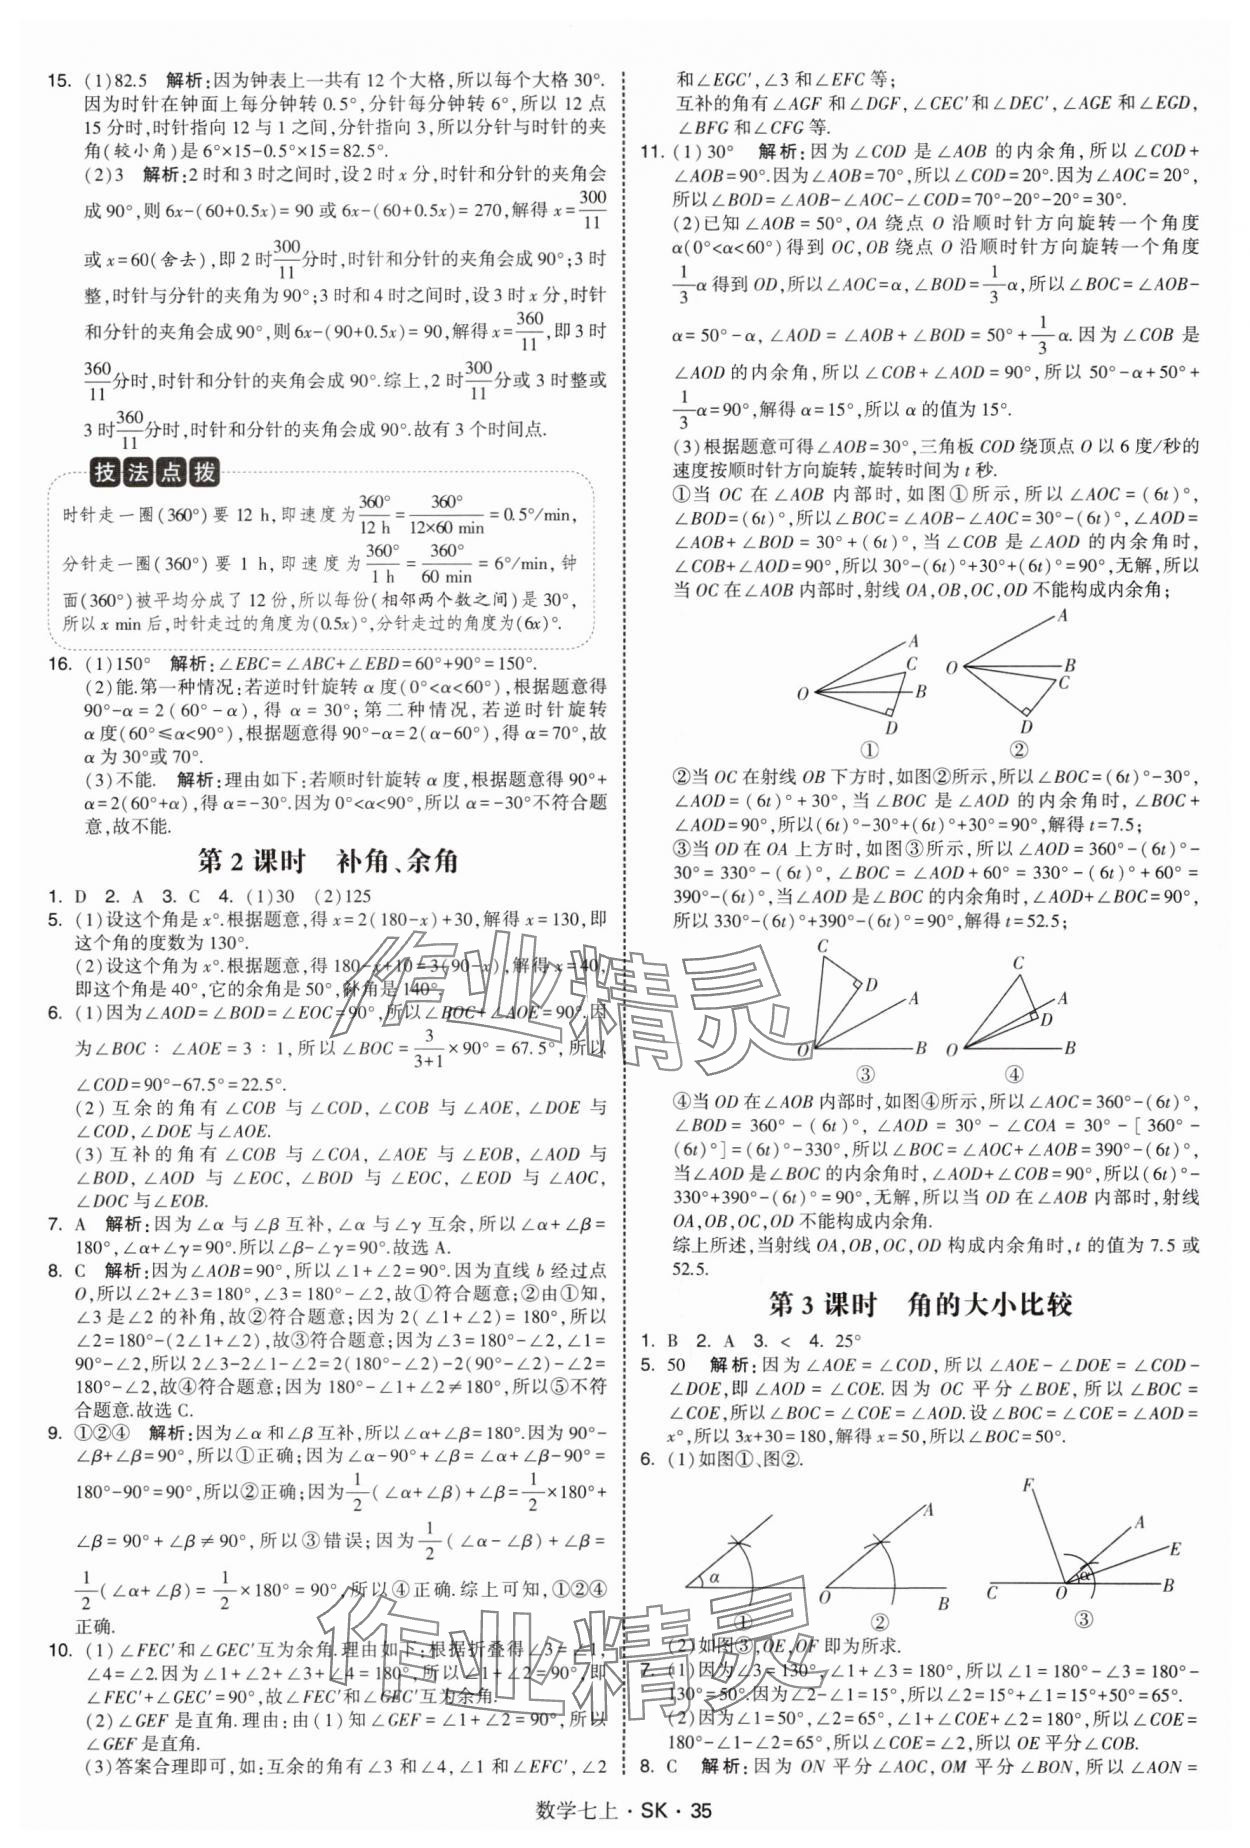 15. (1)82.5 解析:因为钟表上一共有12个大格,所以每个大格30°.
因为时针在钟面上每分钟转0.5°,分针每分钟转6°,所以12点
15分时,时针指向12与1之间,分针指向3,所以分针与时针的夹
角(较小角)是6°×15-0.5°×15=82.5°.
(2)3 解析:2时和3时之间时,设2时x分,时针和分针的夹角会
成90°,则6x-(60+0.5x)=90或6x-(60+0.5x)=270,解得x=300/11
或x=60(舍去),即2时300/11分时,时针和分针的夹角会成90°;3时
整,时针与分针的夹角为90°;3时和4时之间时,设3时x分,时针
和分针的夹角会成90°,则6x-(90+0.5x)=90,解得x=360/11,即3时
360/11分时,时针和分针的夹角会成90°.综上,2时300/11分或3时整或
3时360/11分时,时针和分针的夹角会成90°.故有3个时间点.
技法点拨
时针走一圈(360°)要12 h,即速度为360°/12 h=360°/12×60 min=0.5°/min,
分针走一圈(360°)要1 h,即速度为360°/1 h=360°/60 min=6°/min,钟
面(360°)被平均分成了12份,所以每份(相邻两个数之间)是30°,
所以x min后,时针走过的角度为(0.5x)°,分针走过的角度为(6x)°.
16. (1)150° 解析:∠EBC=∠ABC+∠EBD=60°+90°=150°.
(2)能.第一种情况:若逆时针旋转α度(0°<α<60°),根据题意得
90°-α=2(60°-α),得α=30°;第二种情况,若逆时针旋转
α度(60°≤α<90°),根据题意得90°-α=2(α-60°),得α=70°,故
α为30°或70°.
(3)不能. 解析:理由如下:若顺时针旋转α度,根据题意得90°+
α=2(60°+α),得α=-30°.因为0°<α<90°,所以α=-30°不符合题
意,故不能.
第2课时 补角、余角
1. D 2. A 3. C 4. (1)30 (2)125
5. (1)设这个角是x°.根据题意,得x=2(180-x)+30,解得x=130,即
这个角的度数为130°.
(2)设这个角为x°.根据题意,得180-x+10=3(90-x),解得x=40,
即这个角是40°,它的余角是50°,补角是140°.
6. (1)因为∠AOD=∠BOD=∠EOC=90°,所以∠BOC+∠AOE=90°.因
为∠BOC∶∠AOE=3∶1,所以∠BOC=3/3+1×90°=67.5°,所以
∠COD=90°-67.5°=22.5°.
(2)互余的角有∠COB与∠COD,∠COB与∠AOE,∠DOE与
∠COD,∠DOE与∠AOE.
(3)互补的角有∠COB与∠COA,∠AOE与∠EOB,∠AOD与
∠BOD,∠AOD与∠EOC,∠BOD与∠EOC,∠EOD与∠AOC,
∠DOC与∠EOB.
7. A 解析:因为∠α与∠β互补,∠α与∠γ互余,所以∠α+∠β=
180°,∠α+∠γ=90°.所以∠β-∠γ=90°.故选A.
8. C 解析:因为∠AOB=90°,所以∠1+∠2=90°.因为直线b经过点
O,所以∠2+∠3=180°,∠3=180°-∠2,故①符合题意;②由①知,
∠3是∠2的补角,故②符合题意;因为2(∠1+∠2)=180°,所以
∠2=180°-(2∠1+∠2),故③符合题意;因为∠3=180°-∠2,∠1=
90°-∠2,所以2∠3-2∠1-∠2=2(180°-∠2)-2(90°-∠2)-∠2=
180°-∠2,故④符合题意;因为180°-∠1+∠2≠180°,所以⑤不符
合题意.故选C.
9. ①②④ 解析:因为∠α和∠β互补,所以∠α+∠β=180°.因为90°-
∠β+∠β=90°,所以①正确;因为∠α-90°+∠β=∠α+∠β-90°=
180°-90°=90°,所以②正确;因为1/2(∠α+∠β)+∠β=1/2×180°+
∠β=90°+∠β≠90°,所以③错误;因为1/2(∠α-∠β)+∠β=
1/2(∠α+∠β)=1/2×180°=90°,所以④正确.综上可知,①②④
正确.
10. (1)∠FEC′和∠GEC′互为余角.理由如下:根据折叠得∠3=∠1,
∠4=∠2.因为∠1+∠2+∠3+∠4=180°,所以∠1+∠2=90°,即
∠FEC′+∠GEC′=90°,故∠FEC′和∠GEC′互为余角.
(2)∠GEF是直角.理由:由(1)知∠GEF=∠1+∠2=90°,所以
∠GEF是直角.
(3)答案合理即可,如:互余的角有∠3和∠4,∠1和∠EFC′,∠2
和∠EGC′,∠3和∠EFC等;
互补的角有∠AGF和∠DGF,∠CEC′和∠DEC′,∠AGE和∠EGD,
∠BFG和∠CFG等.
11. (1)30° 解析:因为∠COD是∠AOB的内余角,所以∠COD+
∠AOB=90°.因为∠AOB=70°,所以∠COD=20°.因为∠AOC=20°,
所以∠BOD=∠AOB-∠AOC-∠COD=70°-20°-20°=30°.
(2)已知∠AOB=50°,OA绕点O沿顺时针方向旋转一个角度
α(0°<α<60°)得到OC,OB绕点O沿顺时针方向旋转一个角度
1/3α得到OD,所以∠AOC=α,∠BOD=1/3α,所以∠BOC=∠AOB-
α=50°-α,∠AOD=∠AOB+∠BOD=50°+1/3α.因为∠COB是
∠AOD的内余角,所以∠COB+∠AOD=90°,所以50°-α+50°+
1/3α=90°,解得α=15°,所以α的值为15°.
(3)根据题意可得∠AOB=30°,三角板COD绕顶点O以6度/秒的
速度按顺时针方向旋转,旋转时间为t秒.
①当OC在∠AOB内部时,如图①所示,所以∠AOC=(6t)°,
∠BOD=(6t)°,所以∠BOC=∠AOB-∠AOC=30°-(6t)°,∠AOD=
∠AOB+∠BOD=30°+(6t)°,当∠COB是∠AOD的内余角时,
∠COB+∠AOD=90°,所以30°-(6t)°+30°+(6t)°=90°,无解,所以
当OC在∠AOB内部时,射线OA,OB,OC,OD不能构成内余角;
A
C
O
B
D
①
A
O
B
C
D
②
②当OC在射线OB下方时,如图②所示,所以∠BOC=(6t)°-30°,
∠AOD=(6t)°+30°,当∠BOC是∠AOD的内余角时,∠BOC+
∠AOD=90°,所以(6t)°-30°+(6t)°+30°=90°,解得t=7.5;
③当OD在OA上方时,如图③所示,所以∠AOD=360°-(6t)°-
30°=330°-(6t)°,∠BOC=∠AOD+60°=330°-(6t)°+60°=
390°-(6t)°,当∠AOD是∠BOC的内余角时,∠AOD+∠BOC=90°,
所以330°-(6t)°+390°-(6t)°=90°,解得t=52.5;
C
D
A
O
B
③
C
A
D
O
B
④
④当OD在∠AOB内部时,如图④所示,所以∠AOC=360°-(6t)°,
∠BOD=360°-(6t)°,∠AOD=30°-∠COA=30°-[360°-
(6t)°]=(6t)°-330°,所以∠BOC=∠AOC+∠AOB=390°-(6t)°,
当∠AOD是∠BOC的内余角时,∠AOD+∠COB=90°,所以(6t)°-
330°+390°-(6t)°=90°,无解,所以当OD在∠AOB内部时,射线
OA,OB,OC,OD不能构成内余角.
综上所述,当射线OA,OB,OC,OD构成内余角时,t的值为7.5或
52.5.
第3课时 角的大小比较
1. B 2. A 3. < 4. 25°
5. 50 解析:因为∠AOE=∠COD,所以∠AOE-∠DOE=∠COD-
∠DOE,即∠AOD=∠COE.因为OC平分∠BOE,所以∠BOC=
∠COE,所以∠BOC=∠COE=∠AOD.设∠BOC=∠COE=∠AOD=
x°,所以3x+30=180,解得x=50,所以∠BOC=50°.
6. (1)如图①、图②.
α
①
A
O
B
②
F
A
E
α
C
O
B
③
(2)如图③,OE,OF即为所求.
7. (1)因为∠3=130°,∠1+∠3=180°,所以∠1=180°-∠3=180°-
130°=50°.因为∠2-∠1=15°,所以∠2=15°+∠1=15°+50°=65°.
(2)因为∠1=50°,∠2=65°,∠1+∠COE+∠2=180°,所以∠COE=
180°-∠1-∠2=65°,所以∠COE=∠2,所以OE平分∠COB.
8. C 解析:因为ON平分∠AOC,OM平分∠BON,所以∠AON=
数学七上·SK·35
作业精灵
作业精灵